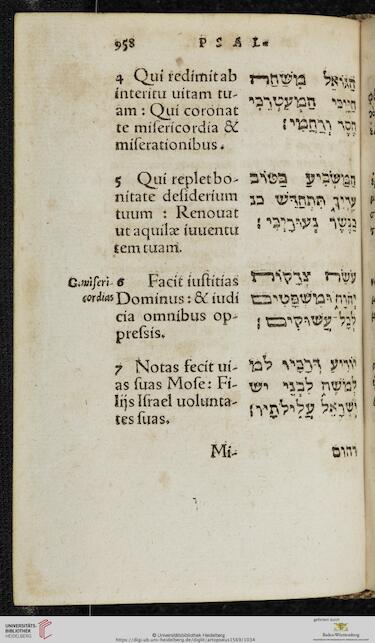 958 PSAL.
4 Qui redimit ab
interitu uitam tu-
am : Qui coronat
te misericordia &
miserationibus.
הַגּוֹאֵל מִשַּׁחַת
חַיָּיְכִי הַמְעַטְּרֵכִי
חֶסֶד וְרַחֲמִים׃
5 Qui replet bo-
nitate desiderium
tuum : Renouat
ut aquilæ iuuentu
tem tuam.
הַמַּשְׂבִּיעַ בַּטּוֹב
עֶדְיֵךְ תִּתְחַדֵּשׁ
נְעוּרָיְכִי׃
C. miseri-
cordias
6 Facit iustitias
Dominus : & iudi
cia omnibus op-
pressis.
עֹשֵׂה צְדָקוֹת
יְהוָה וּמִשְׁפָּטִים
לְכָל עֲשׁוּקִים׃
7 Notas fecit ui-
as suas Mose: Fi-
lijs Israel uolunta-
tes suas.
יוֹדִיעַ דְּרָכָיו
לְמֹשֶׁה לִבְנֵי יש
יִשְׂרָאֵל עֲלִילוֹתָיו׃
Mi-
רחום
UNIVERSITÄTS-
BIBLIOTHEK
HEIDELBERG
© Universitätsbibliothek Heidelberg
https://digi.ub.uni-heidelberg.de/diglit/artopoeus1569/1034
gefördert durch
Baden-Württemberg